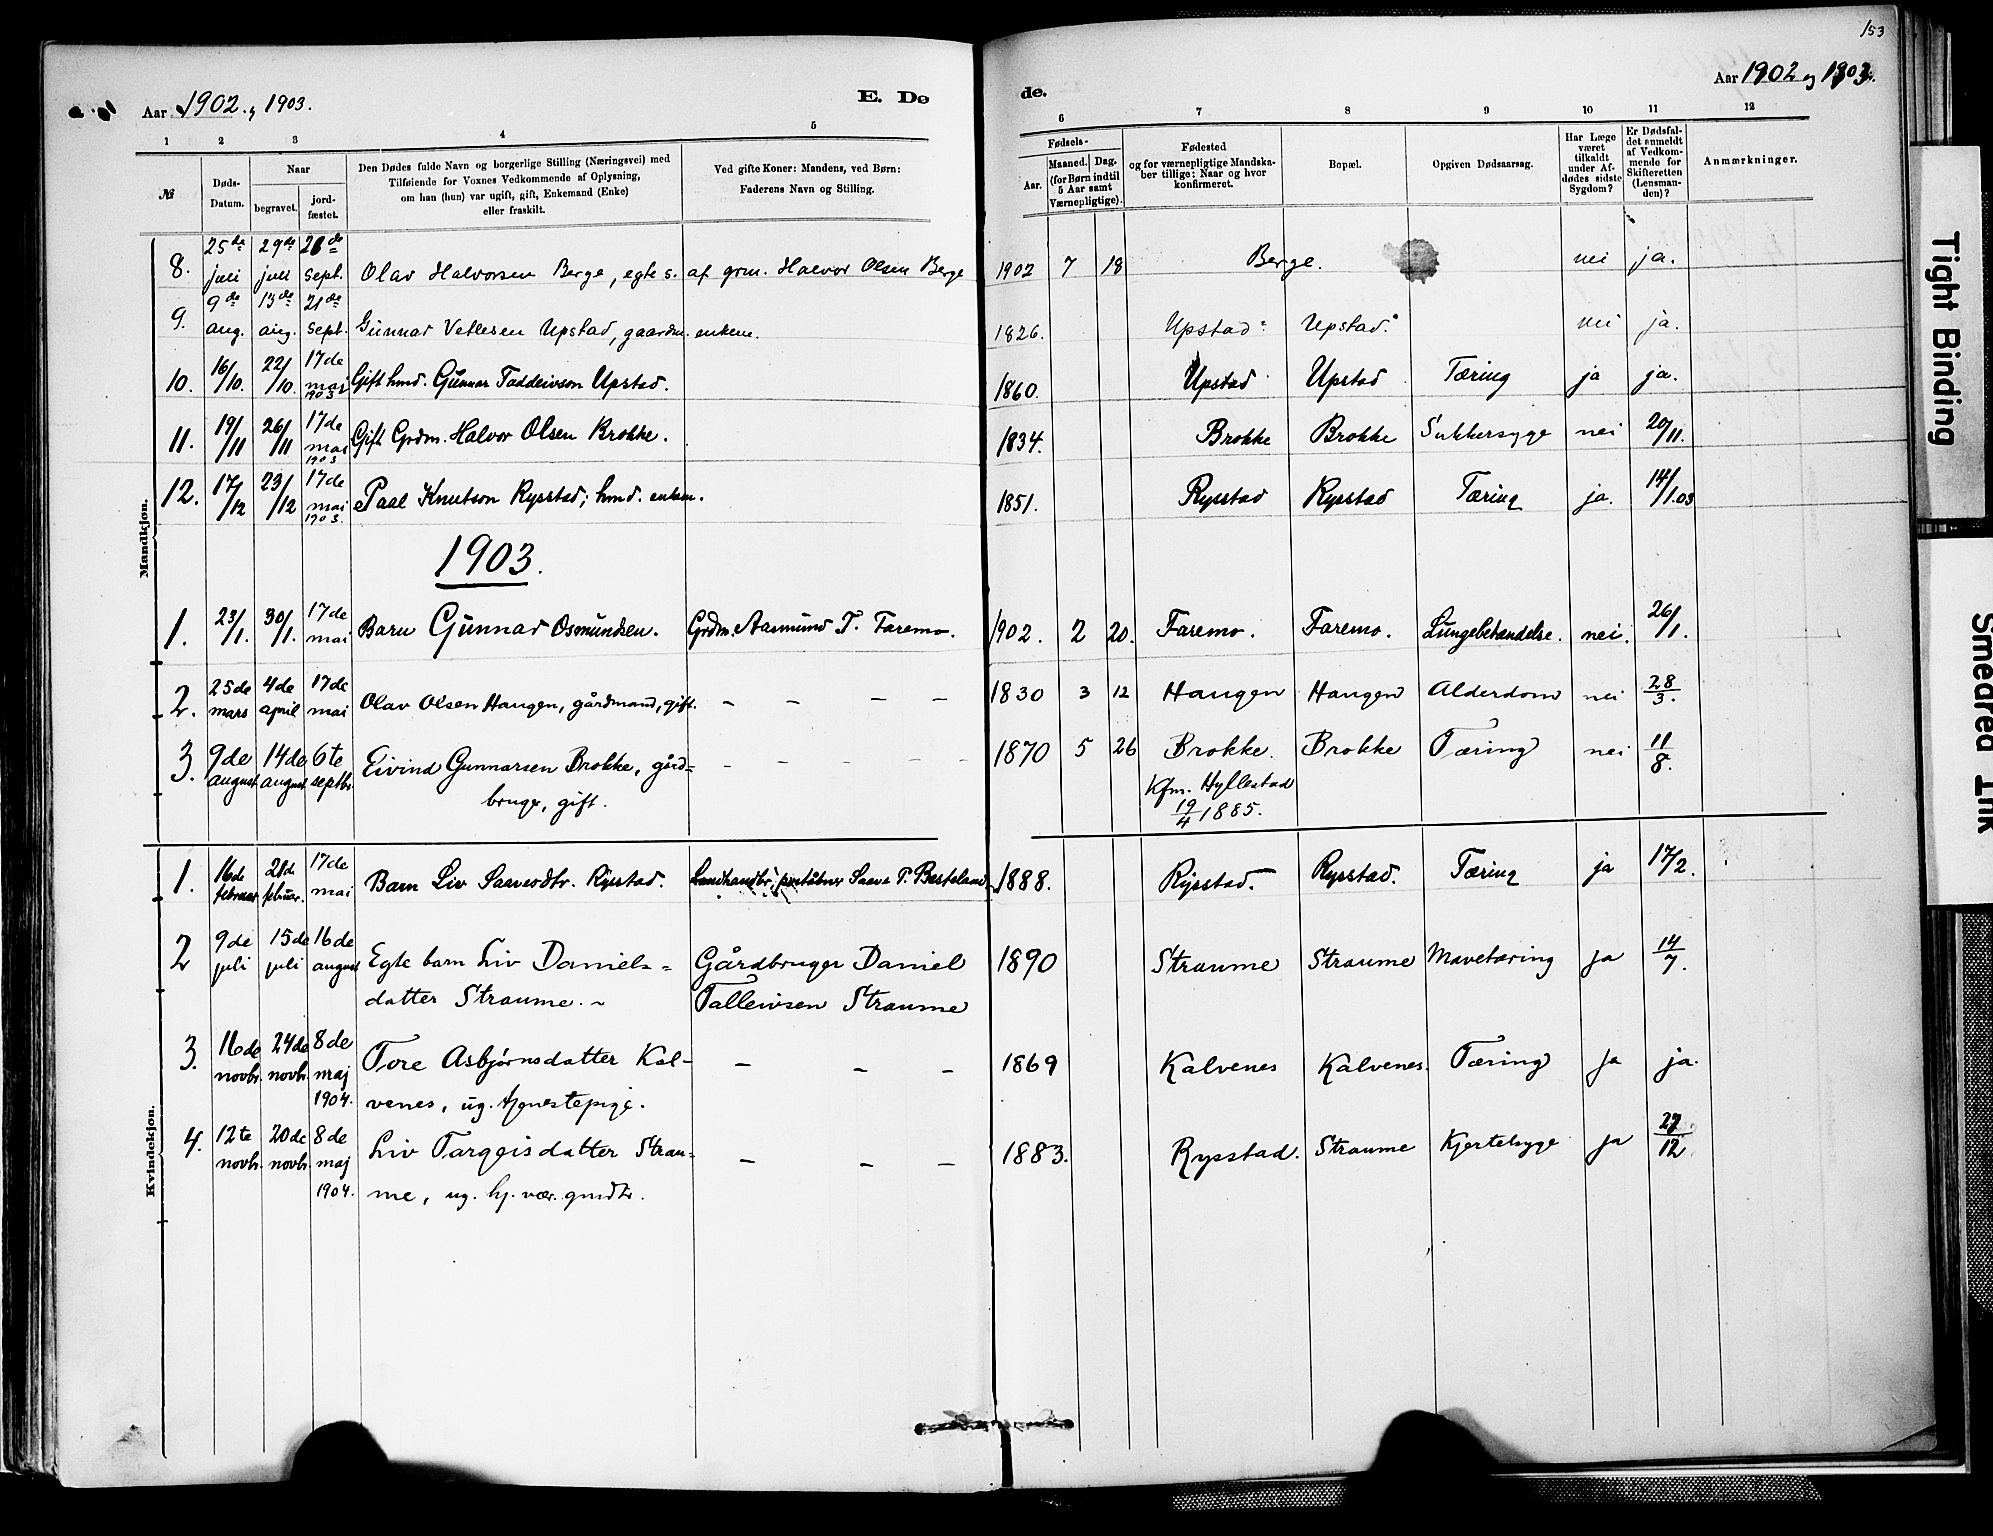 153
Aar 1902 og 1903.
E. Dø
de.
Aar 1902 og 1903.
1 2 3 4 5 6 7 8 9 10 11 12
№
Døds-Datum.
Naar
begravet.
jord-fæstet.
Den Dødes fulde Navn og borgerlige Stilling (Næringsvei) med
Tilføiende for Voxnes Vedkommende af Oplysning,
om han (hun) var ugift, gift, Enkemand (Enke)
eller fraskilt.
Ved gifte Koner: Mandens, ved Børn:
Faderens Navn og Stilling.
Fødsels-
Aar.
Maaned. Dag.
(for Børn indtil
5 Aar samt
Værnepligtige).
Fødested
og for værnepligtige Mandska-
ber tillige: Naar og hvor
konfirmeret.
Bopæl.
Opgiven Dødsaarsag.
Har Læge
været
tilkaldt
under Af-
dødes sidste
Sygdom?
Er Dødsfal-
det anmeldt
af Vedkom-
mende for
Skifteretten
(Lensman-
den)?
Anmærkninger.
Mandkjøn.
8. 25de juli 29de juli 28de sept. Olav Halvorsen Berge, egte s. af grm. Halvor Olsen Berge 1902 7 18 Berge. nei ja.
9. 9de aug. 13de aug. 21de sept. Gunnar Vetlesen Upstad, gaardm. enkem. 1826. Upstad Upstad. nei ja.
10. 16/10. 22/10. 17de mai 1903 Gift hmd. Gunnar Taddeivson Upstad. 1860. Upstad Upstad Tæring ja ja.
11. 19/11 26/11 17de mai 1903 Gift Grdm. Halvor Olsen Brokke. 1834. Brokke Brokke Sukkersyge nei 20/11.
12. 17/12 23/12 17de mai 1903. Paal Knutson Rysstad; hmd. enkem. 1851. Rysstad Rysstad Tæring ja. 14/1.03
1903.
1. 23/1. 30/1. 17de mai Barn Gunnar Osmundsen. Grdm. Aasmund T. Faremo. 1902. 2 20. Faremo. Faremo. Lungebetændelse. nei. 26/1.
2. 25de mars 4de april 17de mai Olav Olsen Haugen, gårdmand, gift. – – – – 1830 3 12 Haugen Haugen Alderdom nei 28/3.
3. 9de august 14de august 6te septbr. Eivind Gunnarsen Brokke, gård- – – – – – 1870 5 26 Brokke. Brokke Tæring nei 11/8.
bruger, gift.
Kfm. Hyllestad
19/4 1885.
Kvindekjøn.
1. 16de februar 21de februar. 17de mai Barn Liv Saavesdtr. Rysstad. Landhandlr., poståbner Saave T. Besteland 1888. Rysstad. Rysstad. Tæring ja 17/2.
2 9de juli 15de juli 16de august Egte barn Liv Daniels- Gårdbruger Daniel 1890 Straume Straume Mavetæring ja 14/7.
datter Straume. Talleivsen Straume
3. 16de novbr. 24de novbr. 8de maj 1904. Tore Asbjørnsdatter Kal- – – – 1869 Kalvenes Kalvenes. Tæring ja ja.
venes, ug. tjenestepige.
4. 12te novbr. 20de novbr. 8de maj 1904. Liv Targeisdatter Strau- – – – 1883. Rysstad. Straume Hjertesyge ja 27/12
me, ug. hj. vær. gmdtr.
Tight Binding
Smeared Ink